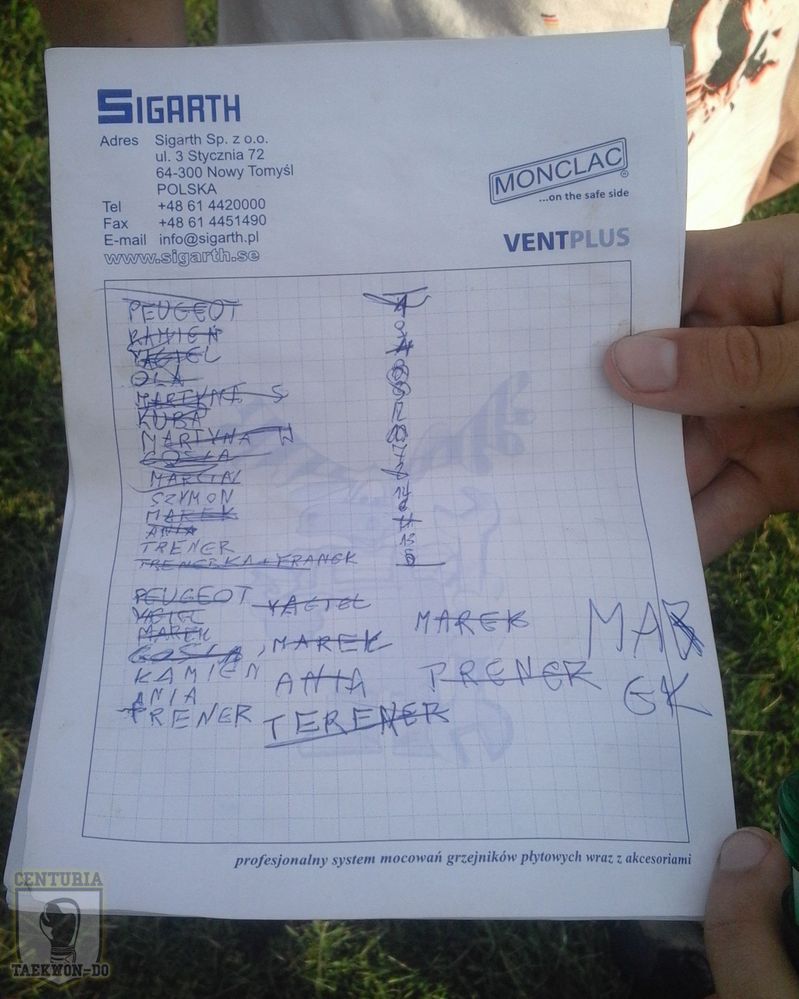 SIGARTH
Adres Sigarth Sp. z o.o.
ul. 3 Stycznia 72
64-300 Nowy Tomyśl
POLSKA
Tel +48 61 4420000
Fax +48 61 4451490
E-mail info@sigarth.pl
www.sigarth.se
MONCLAC®
...on the safe side
VENTPLUS
PEUGEOT
KAMIEŃ
YAGIEL
OLA
MARTYNA S
KUBA
MARTYNA W
GOSIA
MARCIN
SZYMON 14
MAREK
ANIA
TRENER 15
TRENERKA + FRANEK
PEUGEOT YAGIEL
YAGIEL
MAREK MAREK
GOSIA, MAREK
KAMIEŃ ANIA TRENER
ANIA
TRENER TERENER
MAR
EK
profesjonalny system mocowań grzejników płytowych wraz z akcesoriami
CENTURIA
TAEKWON-DO